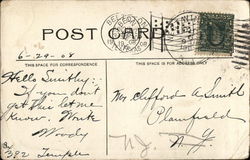 POST CARD
6-29-08
THIS SPACE FOR CORRESPONDENCE
THIS SPACE IS FOR ADDRESS ONLY
Hello Smithy:-
If you don't
get this let me
know. Write
Woody
392 Temple
Mr. Clifford A. Smith
Plainfield
N.J.
N.Y.